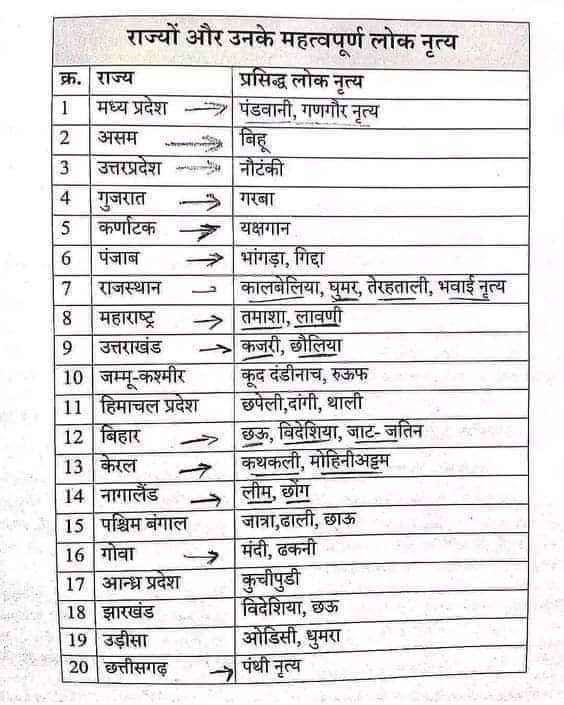 राज्यों और उनके महत्वपूर्ण लोक नृत्य
क्र. राज्य प्रसिद्ध लोक नृत्य
1 मध्य प्रदेश पंडवानी, गणगौर नृत्य
2 असम बिहू
3 उत्तरप्रदेश नौटंकी
4 गुजरात गरबा
5 कर्णाटक यक्षगान
6 पंजाब भांगड़ा, गिद्दा
7 राजस्थान कालबेलिया, घुमर, तेरहताली, भवाई नृत्य
8 महाराष्ट्र तमाशा, लावणी
9 उत्तराखंड कजरी, छौलिया
10 जम्मू-कश्मीर कूद दंडीनाच, रुऊफ
11 हिमाचल प्रदेश छपेली,दांगी, थाली
12 बिहार छऊ, विदेशिया, जाट- जतिन
13 केरल कथकली, मोहिनीअट्टम
14 नागालैंड लीम, छोंग
15 पश्चिम बंगाल जात्रा,ढाली, छाऊ
16 गोवा मंदी, ढकनी
17 आन्ध्र प्रदेश कुचीपुडी
18 झारखंड विदेशिया, छऊ
19 उड़ीसा ओडिसी, धुमरा
20 छत्तीसगढ़ पंथी नृत्य